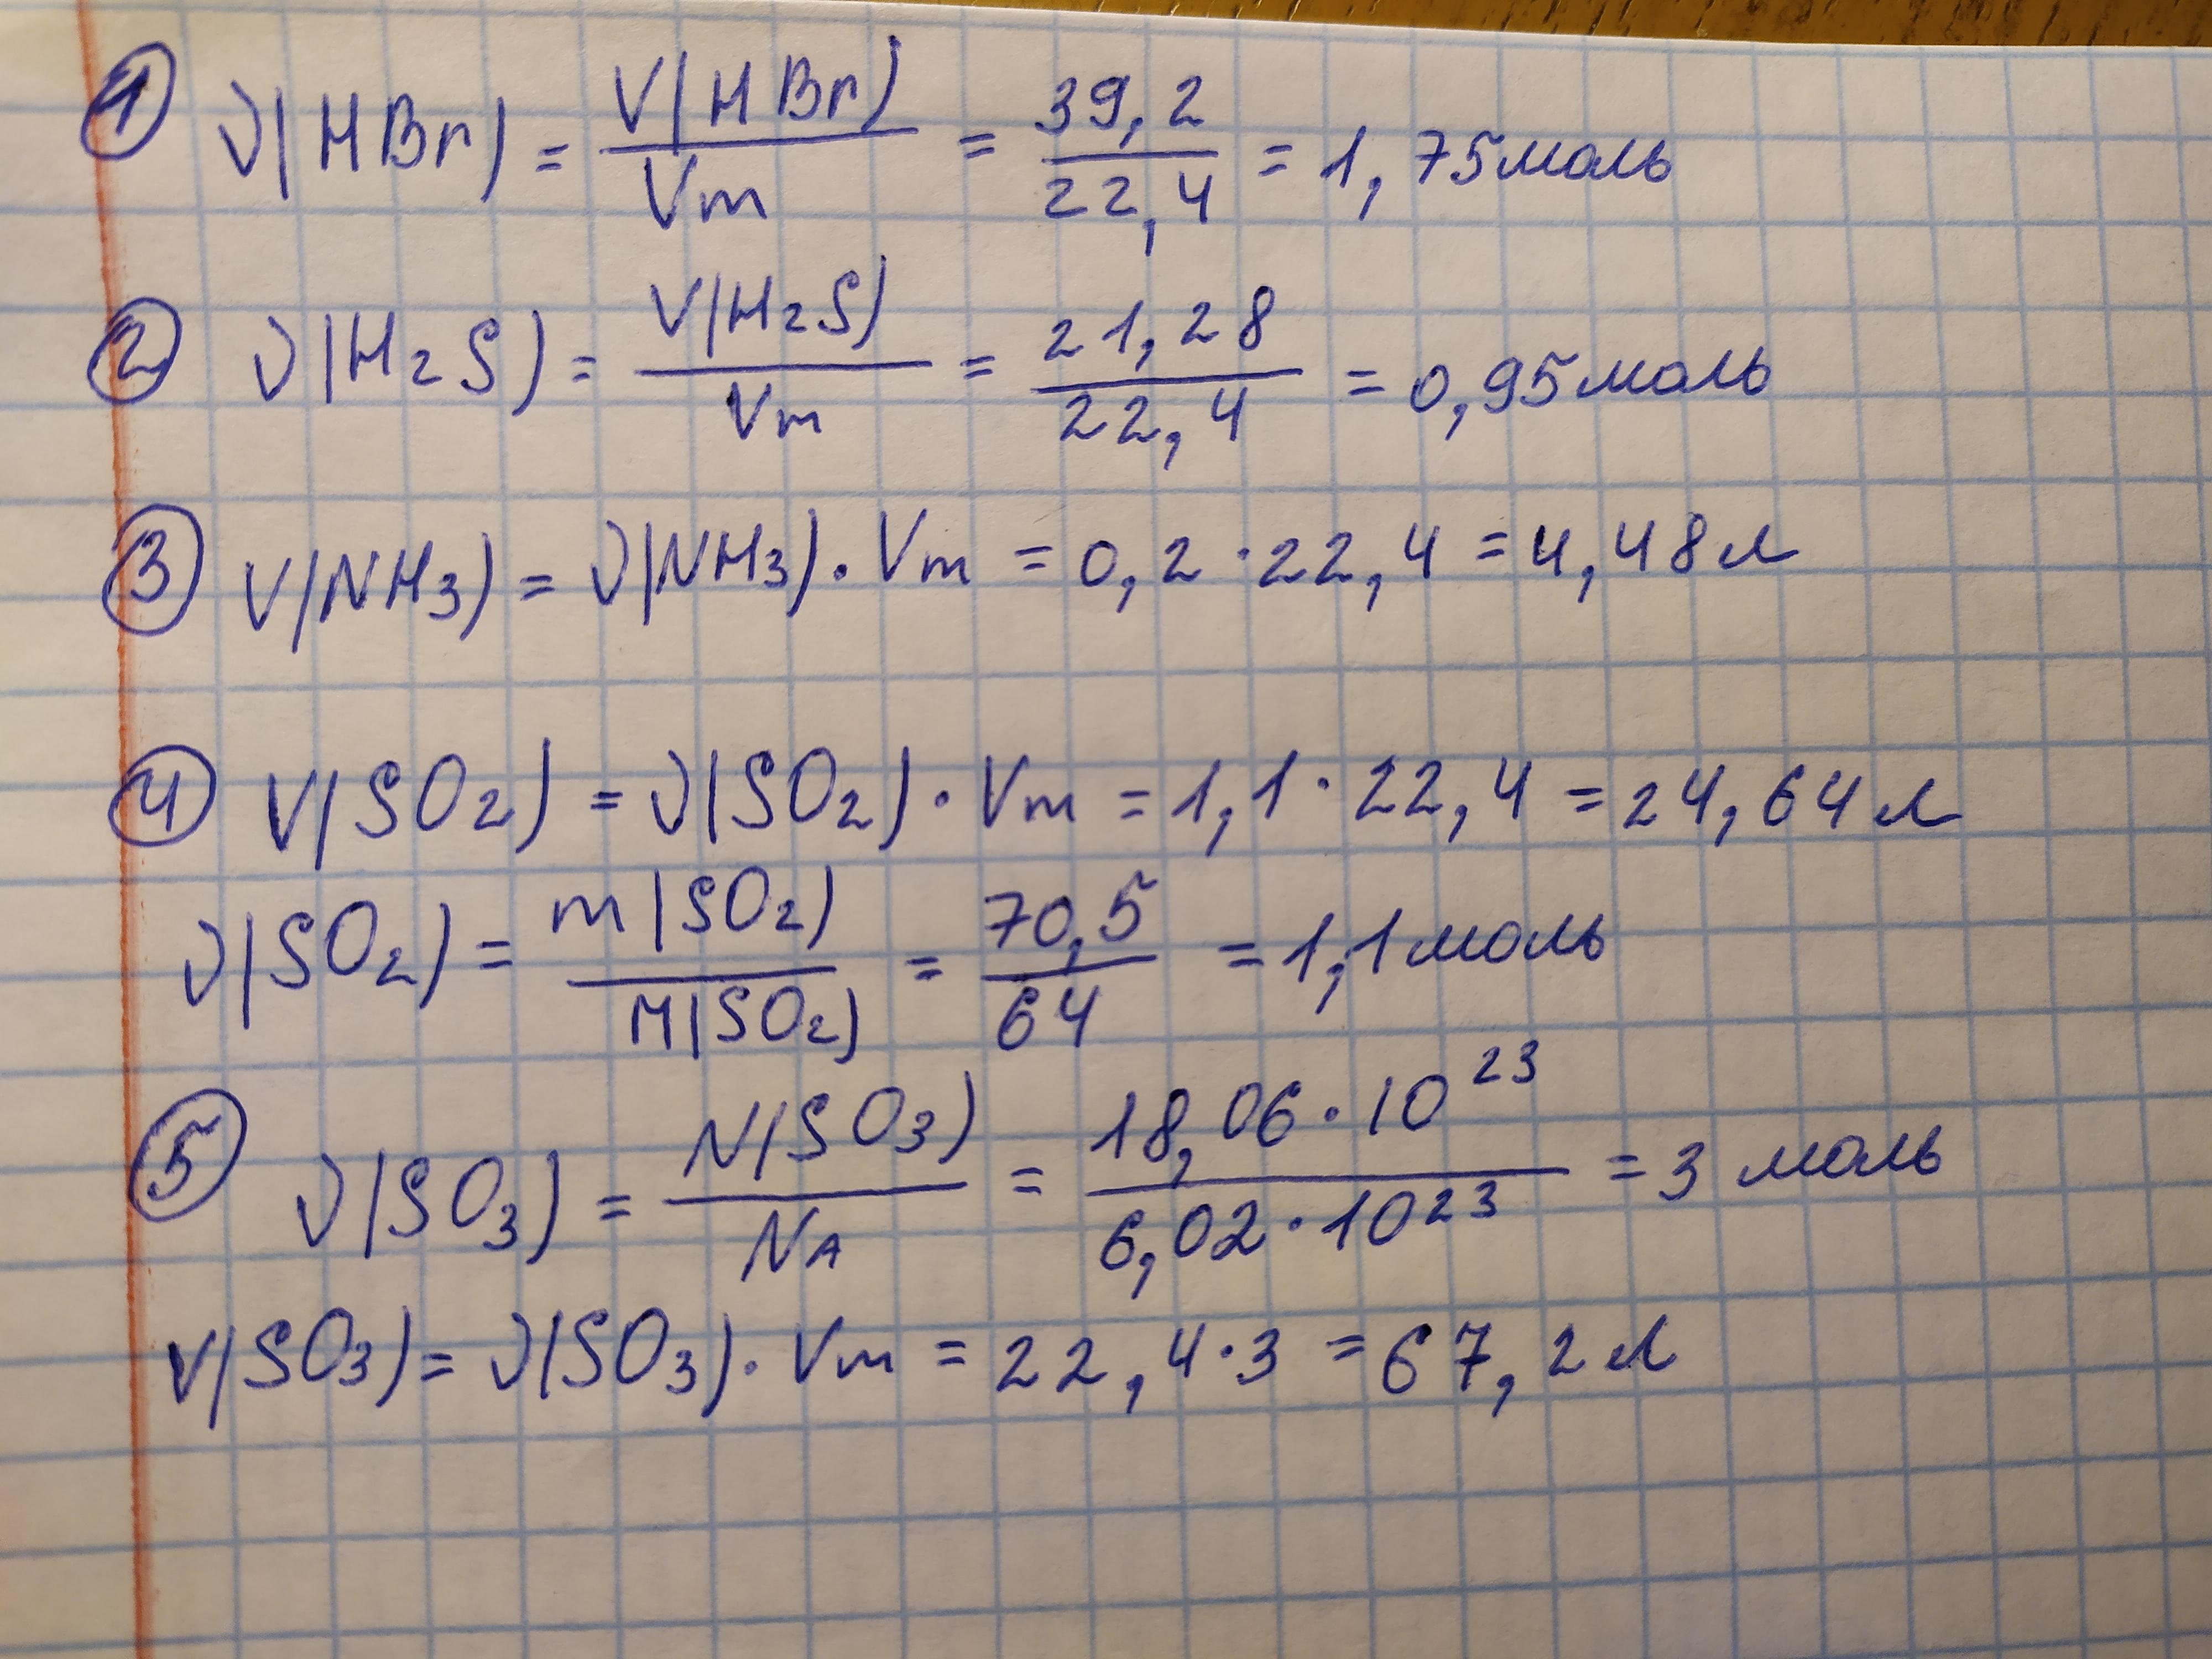 1 ν(HBr) = V(HBr)/Vm = 39,2/22,4 = 1,75 моль
2 ν(H₂S) = V(H₂S)/Vm = 21,28/22,4 = 0,95 моль
3 V(NH₃) = ν(NH₃) · Vm = 0,2 · 22,4 = 4,48 л
4 V(SO₂) = ν(SO₂) · Vm = 1,1 · 22,4 = 24,64 л
ν(SO₂) = m(SO₂)/M(SO₂) = 70,5/64 = 1,1 моль
5 ν(SO₃) = N(SO₃)/NA = 18,06 · 10²³/6,02 · 10²³ = 3 моль
V(SO₃) = ν(SO₃) · Vm = 22,4 · 3 = 67,2 л